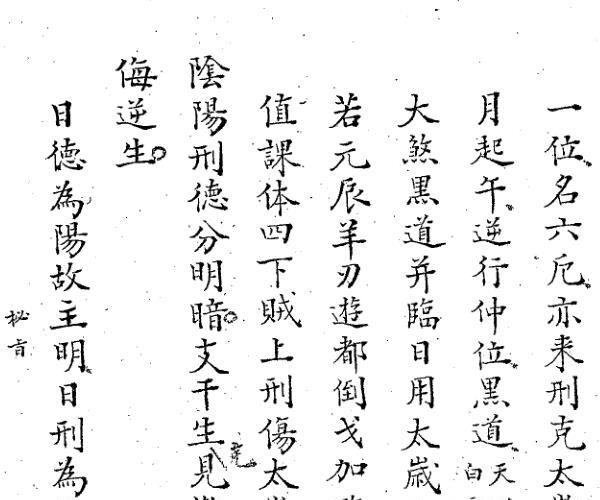 一位名六厄亦来刑克太
月起午逆行仲位黑道天白
大煞黒道并臨日用太歳
若元辰羊刃遊都倒戈加
值課体四下賊上刑傷太
陰陽刑德分明暗支干生見
侮逆生
日德為陽故主明日刑為
秘旨